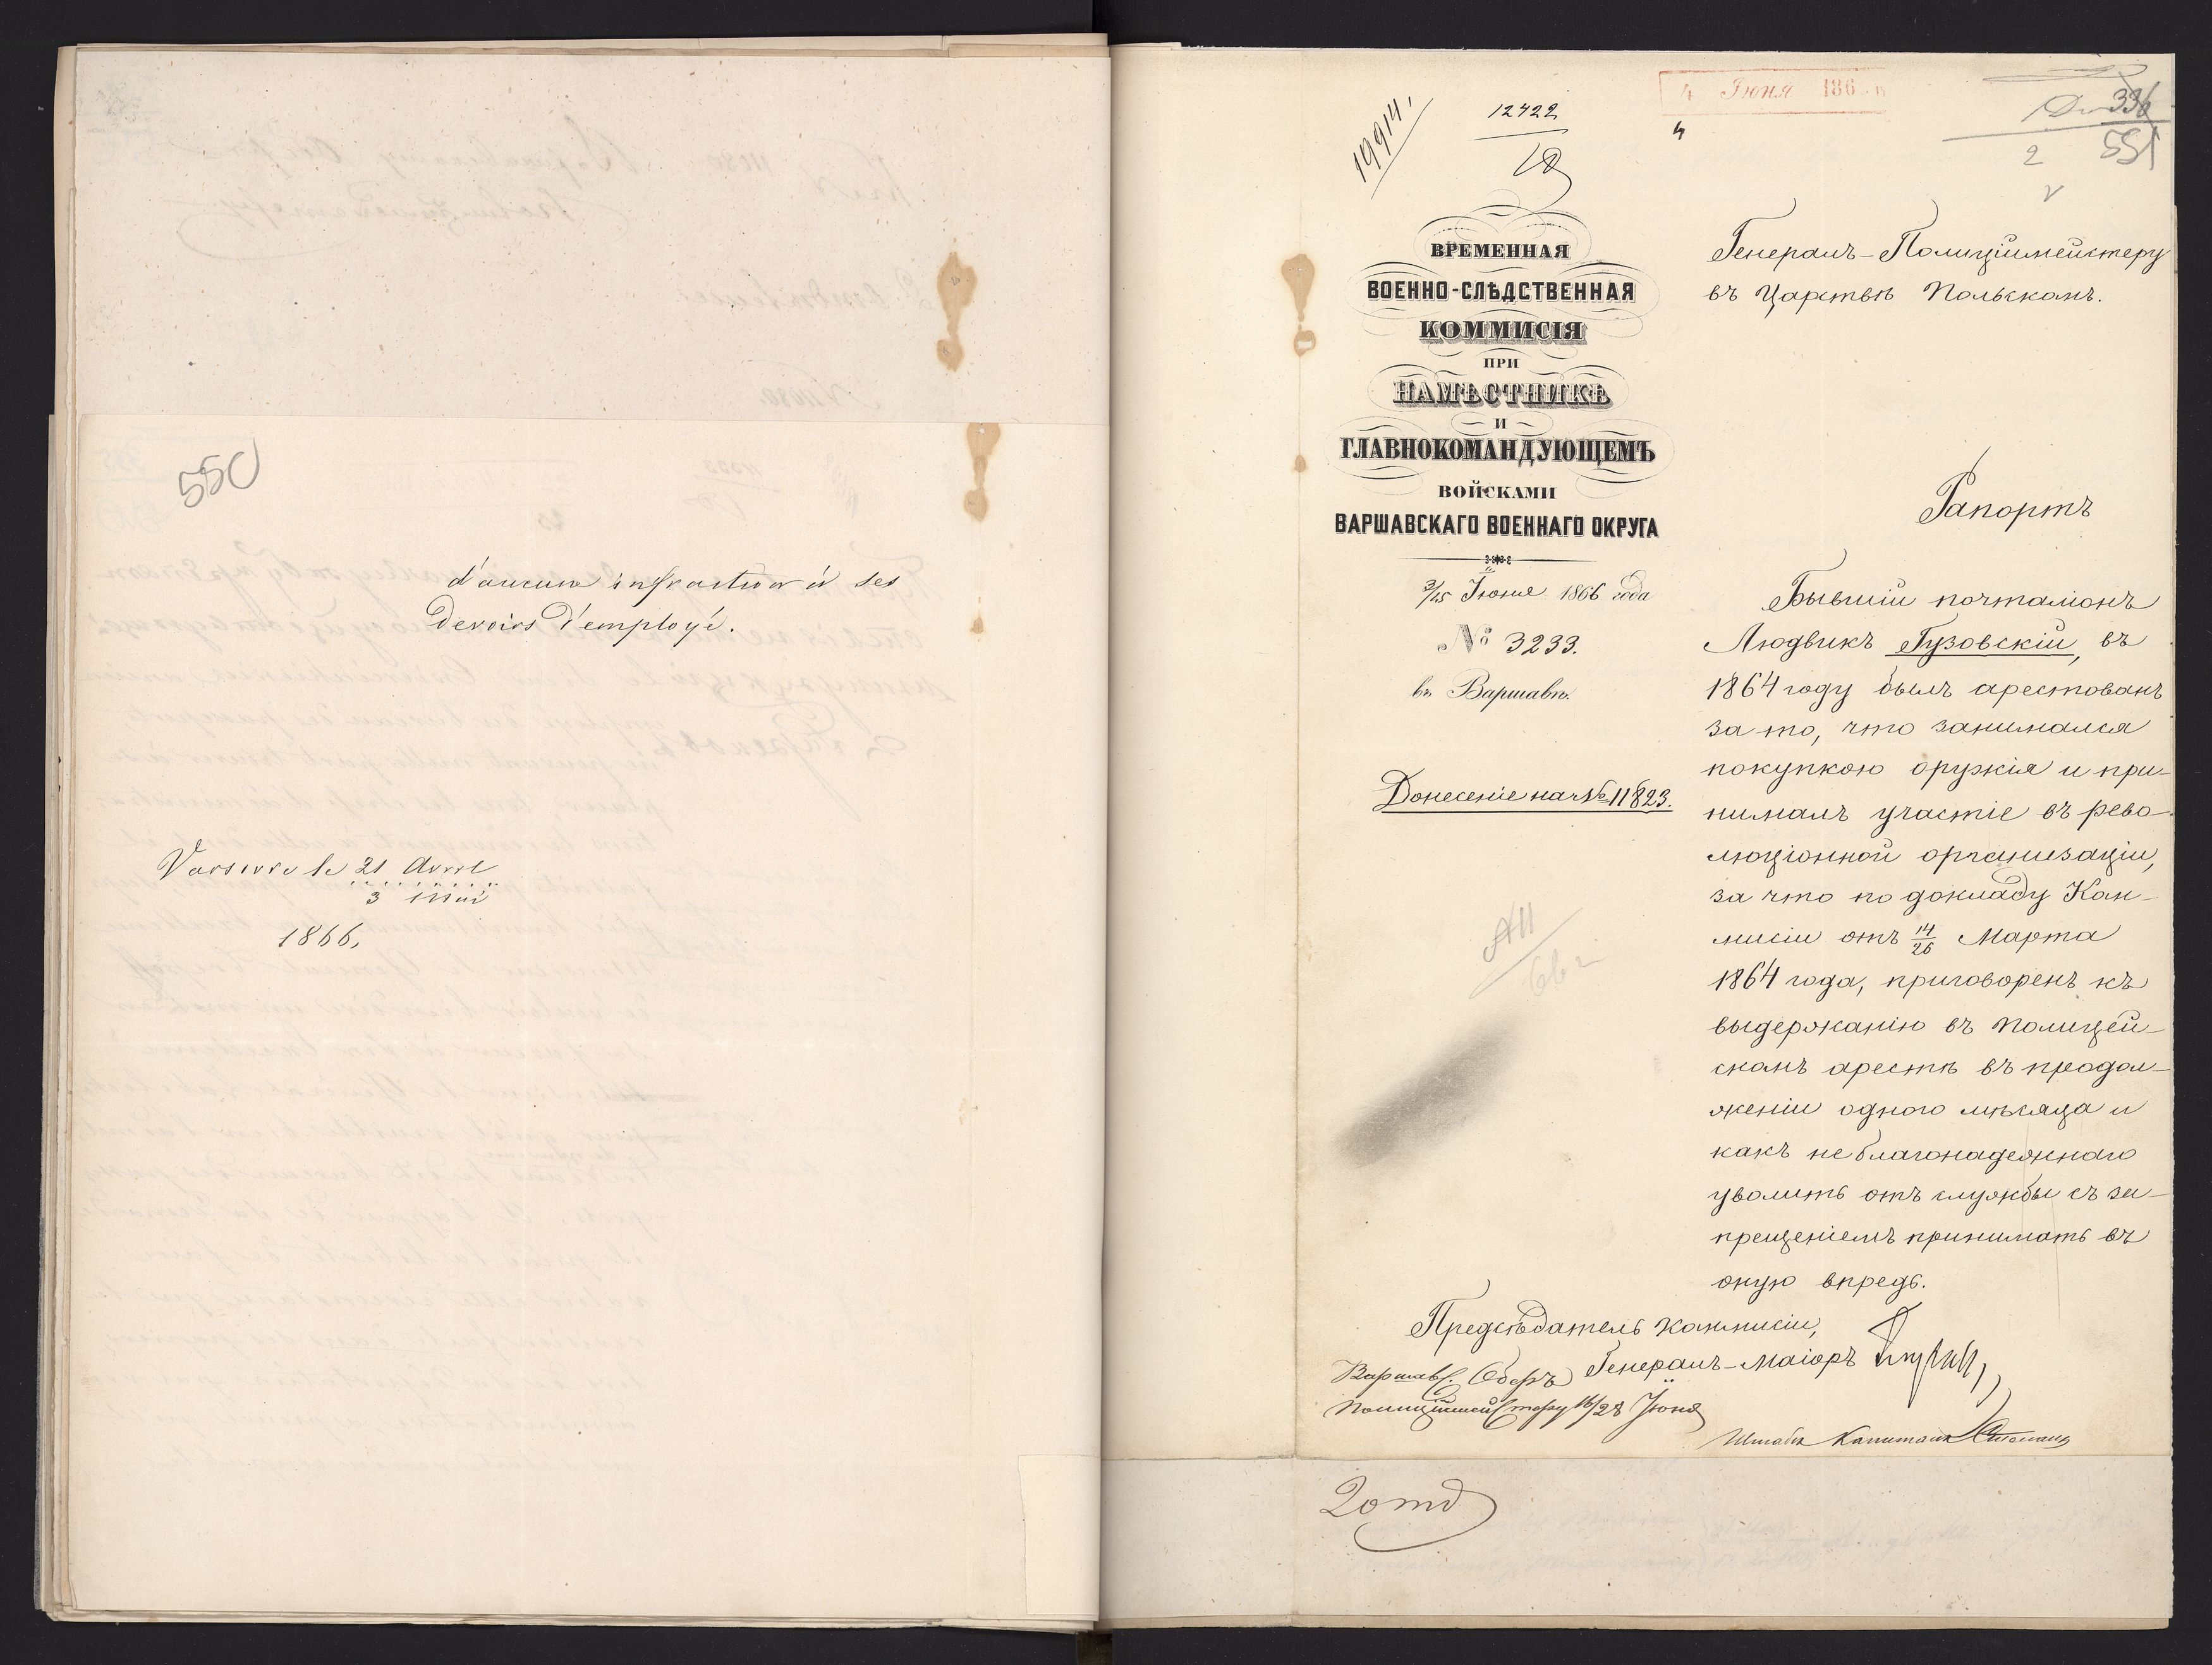 550
d'aucune infraction à ses
devoirs d'employé.
Varsovie le 21 Avril
3 mai
1866.
19914.
12422
4 Іюня 186
4
336
551
2
ВРЕМЕННАЯ
ВОЕННО-СЛѢДСТВЕННАЯ
КОММИСІЯ
ПРИ
НАМѢСТНИКѢ
И
ГЛАВНОКОМАНДУЮЩЕМЪ
ВОЙСКАМИ
ВАРШАВСКАГО ВОЕННАГО ОКРУГА
3/15 Іюня 1866 года
№ 3233.
въ Варшавѣ.
Донесеніе на № 11823.
Генералъ-Полиціймейстеру
въ Царствѣ Польскомъ.
Рапортъ
Бывшій почталіонъ
Людвикъ Гузовскій, въ
1864 году былъ арестованъ
за то, что занимался
покупкою оружія и при-
нималъ участіе въ рево-
люціонной организаціи,
за что по докладу Ком-
мисіи отъ 14/26 Марта
1864 года, приговоренъ къ
выдержанію въ полицей-
скомъ арестѣ въ продол-
женіи одного мѣсяца и
какъ неблагонадежнаго
уволить отъ службы съ за-
прещеніемъ принимать въ
оную впредь.
Предсѣдатель коммисіи,
Генералъ-Маіоръ
Варшав. Оберъ
Полиціймейстеру 16/28 Іюня
Штабсъ Капитанъ
2 отд